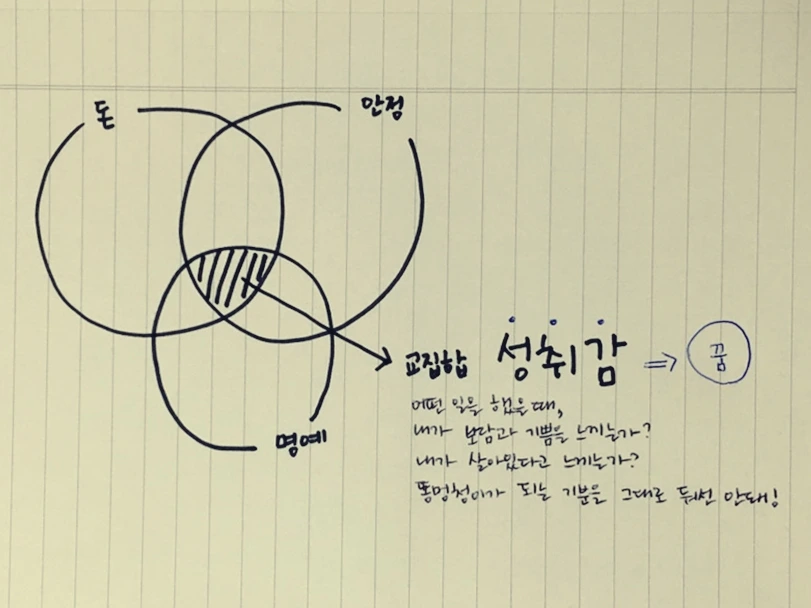 돈
안정
명예
교집합 성취감 ⇒ 꿈
어떤 일을 했을때,
내가 보람과 기쁨을 느끼는가?
내가 살아있다고 느끼는가?
똥멍청이가 되는 기분을 그대로 둬선 안돼!